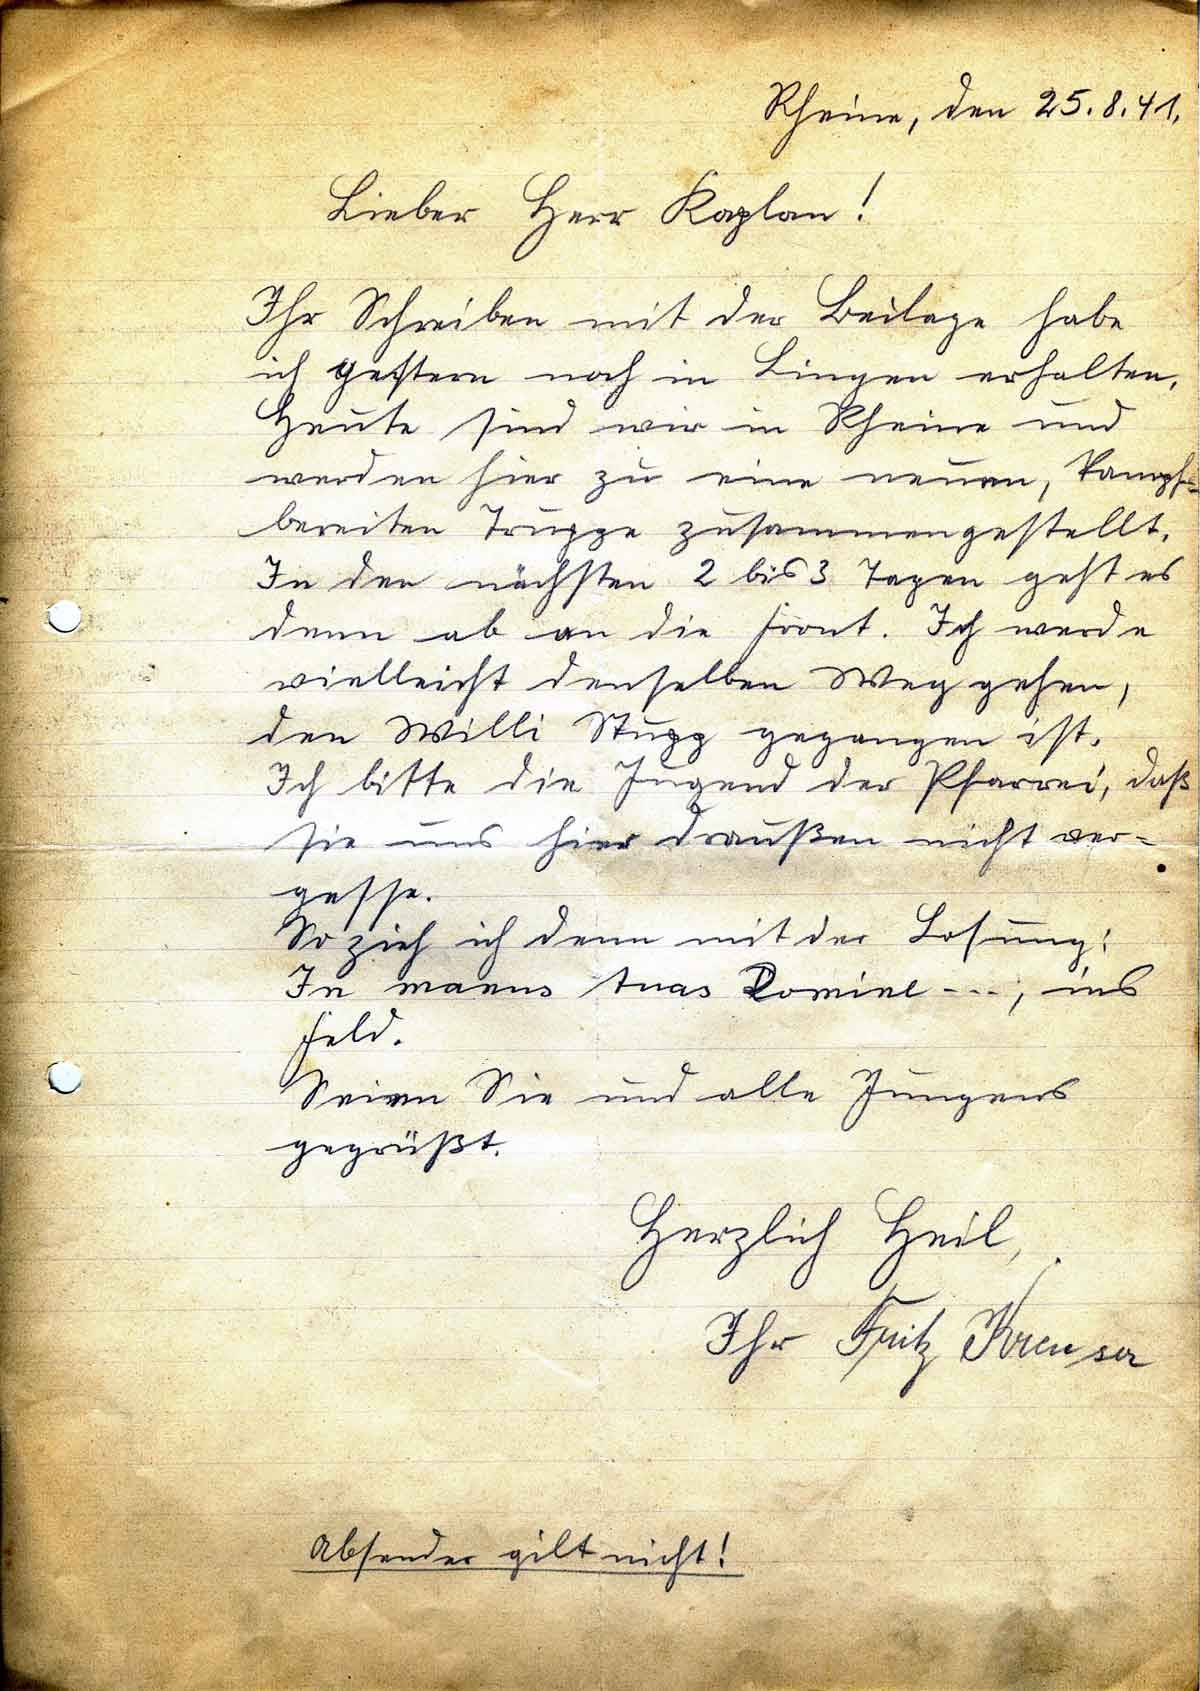 Rheine, den 25.8.41.
Lieber Herr Kaplan!
Ihr Schreiben mit der Beilage habe
ich gestern noch in Lingen erhalten.
Heute sind wir in Rheine und
werden hier zu eine neuen, kampf=
bereiten Truppe zusammengestellt.
In den nächsten 2 bis 3 Tagen geht es
denn ab an die Front. Ich werde
vielleicht denselben Weg gehen,
den Willi Stupp gegangen ist.
Ich bitte die Jugend der Pfarrei, daß
sie uns hier draußen nicht ver=
gesse.
So zieh ich denn mit der Losung:
In manus tuas Domine - - -, ins
Feld.
Seien Sie und alle Jungens
gegrüßt.
Herzlich Heil,
Ihr Fritz Kreuser
Absender gilt nicht!